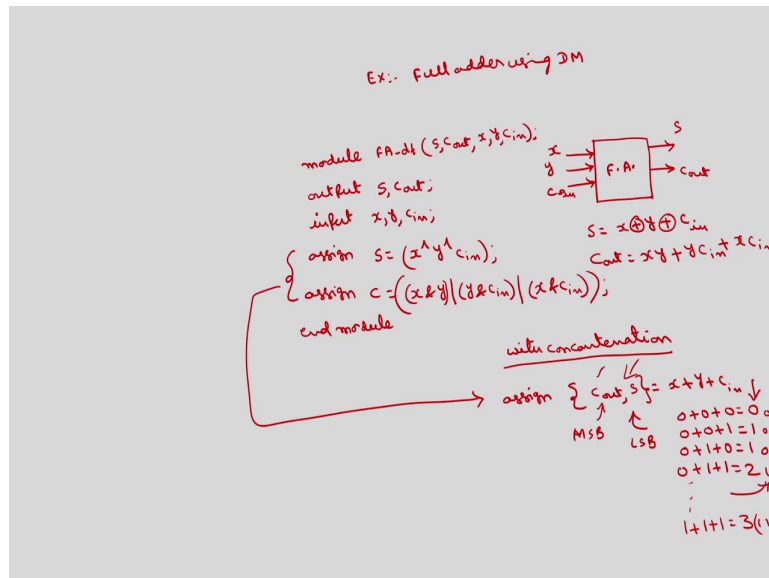 Ex:- Full adder using DM
module FA-df (S, Cout, x, y, Cin);
output S, Cout;
input x, y, Cin;
assign S = (x^y^Cin);
assign C = ((x&y)|(y&Cin)|(x&Cin));
end module
x
y
Cin
F.A.
S
Cout
S = x⊕y⊕Cin
Cout = xy + yCin + xCin
with concantenation
assign { Cout, S } = x + y + Cin
MSB
LSB
0+0+0=0 0
0+0+1=1 0
0+1+0=1 0
0+1+1=2
1+1+1=3(1